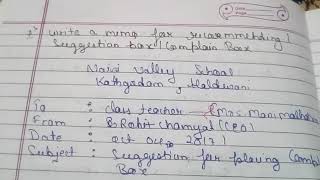 write a memo for recommending/
Suggestion box/Complain Box
Naini Valley School
Kathgodam, Haldwani
To : class teacher (Mrs Mani malhotra
From : Rohit Chamyal (CEO)
Date : oct
Subject : Suggestion for placing Comp
Box